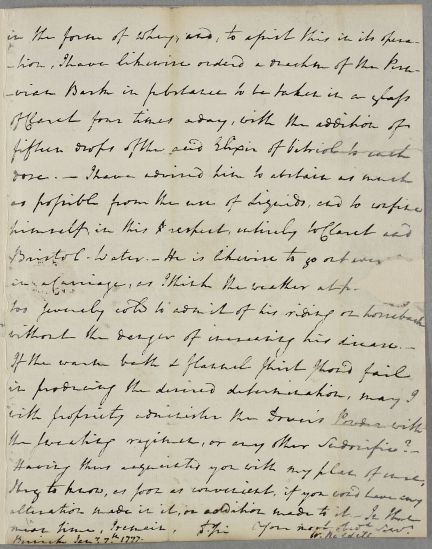 in the form of whey, and, to assist this in its opera-
-tion, I have likewise orderd a drachm of the Peru-
-vian Bark in substance to be taken in a Glass
of Claret four times a day, with the addition of
fifteen drops of the acid Elixir of Vitriol to each
dose. — I have advised him to abstain as much
as possible from the use of Liquids, and to confine
himself, in this respect, entirely to Claret and
Bristol-Water. — He is likewise to go out every
in a Carriage, as I think the weather at
too severely cold to admit of his riding on horseback
without the danger of increasing his disease. —
If the warm bath & flannel shirt shou'd fail
in producing the desired determination, may I
with propriety administer the Dover's Powder with
the sweating regimen, or any other Sudorific? —
Having thus acquainted you with my plan of cure,
I beg to know, as soon as convenient, if you wou'd have any
alteration made in it, or addition made to it — In the
mean time, I remain, Sir Your most obedt Servt
Jany 7th 1777. W.